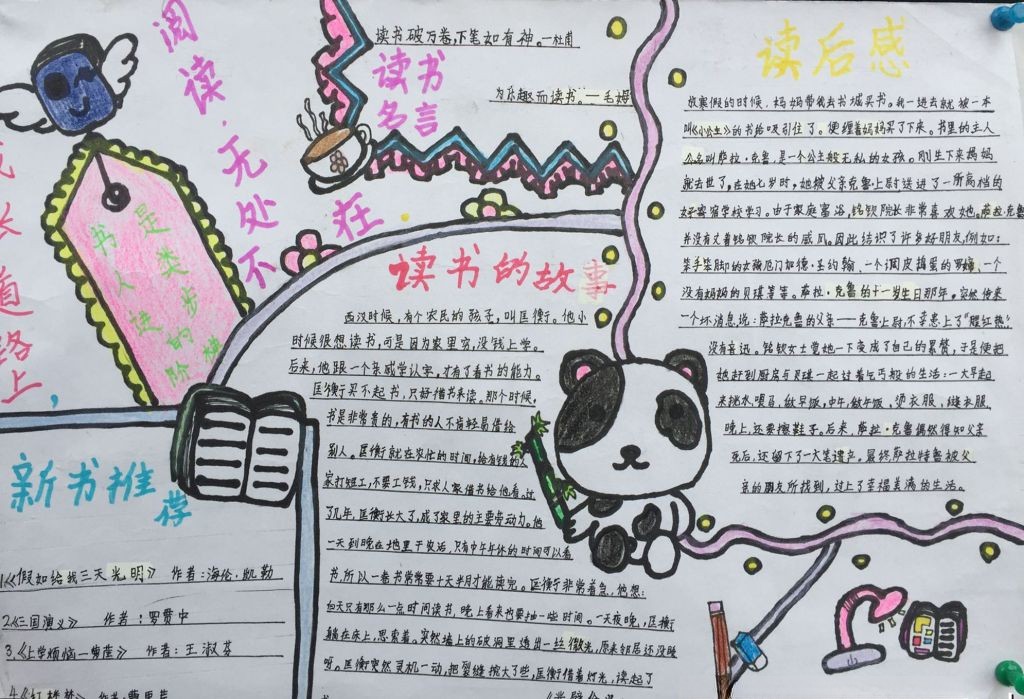 阅读,无处不在
成长道路上,
书是人类进步的阶梯
读书名言
读书破万卷,下笔如有神。—杜甫
为乐趣而读书。——毛姆
读书的故事
西汉时候,有个农民的孩子,叫匡衡。他小
时候很想读书,可是因为家里穷,没钱上学。
后来,他跟一个亲戚学认字,才有了看书的能力。
匡衡买不起书,只好借书来读。那个时候,
书是非常贵的,有书的人不肯轻易借给
别人。匡衡就在农忙的时间,给有钱的人
家打短工,不要工钱,只求人家借书给他看。过
了几年,匡衡长大了,成了家里的主要劳动力。他
一天到晚在地里干农活,只有中午年休的时间可以看
书,所以一卷书常常要十天半月才能读完。匡衡非常着急,他想:
白天只有那么一点时间读书,晚上看来也要抽一些时间。一天夜晚,匡衡
躺在床上,思索着。突然墙上的破洞里透出一丝微光,原来邻居还没睡
呀。匡衡突然灵机一动,把裂缝挖大了些,匡衡借着灯光,读起了
书
读后感
放寒假的时候,妈妈带我去书城买书。我一进去就被一本
叫《小公主》的书给吸引住了。便缠着妈妈买了下来。书里的主人
公名叫萨拉·克鲁,是一个公主般无私的女孩。刚生下来妈妈
就去世了,在她七岁时,她被父亲克鲁上尉送进了一所高档的
女子寄宿学校学习。由于家庭富裕,铭钦院长非常喜欢她。萨拉·克鲁
并没有仗着铭钦院长的威风。因此结识了许多好朋友,例如:
笨手笨脚的女孩厄门加德·圣约翰、一个调皮捣蛋的罗娣、一个
没有妈妈的贝琪等等。萨拉·克鲁的十一岁生日那年。突然传来
一个坏消息,说:萨拉克鲁的父亲——克鲁上尉,不幸患上了"腥红热"
没有音迅。铭钦女士觉她一下变成了自己的累赘,于是便把
她赶到厨房与贝琪一起过着乞丐般的生活:一大早起
来挑水、喂马,做早饭,中午,做午饭、烫衣服、缝衣服,
晚上,还要擦鞋子。后来,萨拉·克鲁偶然得知父亲
死后,还留下了一大笔遗产。最终萨拉特鲁被父
亲的朋友所找到,过上了幸福美满的生活。
新书推荐
1.《假如给我三天光明》 作者:海伦·凯勒
2.《三国演义》 作者:罗贯中
3.《上学烦恼一箩筐》 作者:王淑芬
4.《红楼梦》 作者:曹雪芹